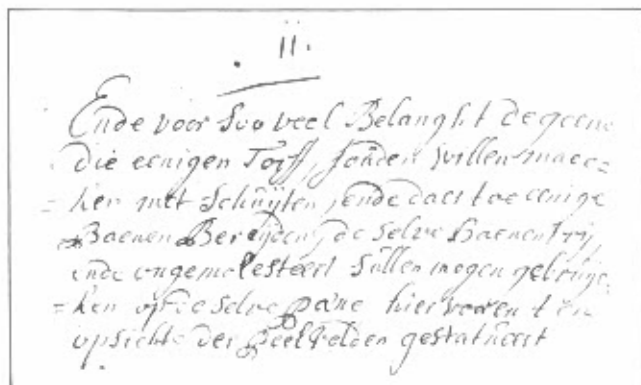 11.
Ende voor Soo veel Belanght de geene
die eenigen Torff, souden willen maec=
=ken met Schuijten, ende daer toe eenige
Baenen Bereijden, de selve Baenen vrij,
ende ongemolesteert sullen mogen gebruije
=ken op de selve paene hier voren ten
opsichte der Peelvelden gestatueert